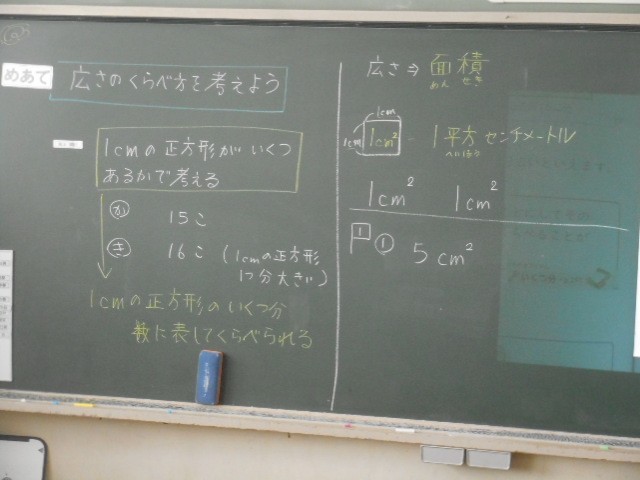 めあて 広さのくらべ方を考えよう
1cmの正方形がいくつ
あるかで考える
か 15こ
き 16こ (1cmの正方形
1つ分大きい)
1cmの正方形のいくつ分
数に表してくらべられる
広さ⇒面積
めん せき
1cm
1cm 1cm² 1平方センチメートル
へいほう
1cm² 1cm²
1 ① 5cm²